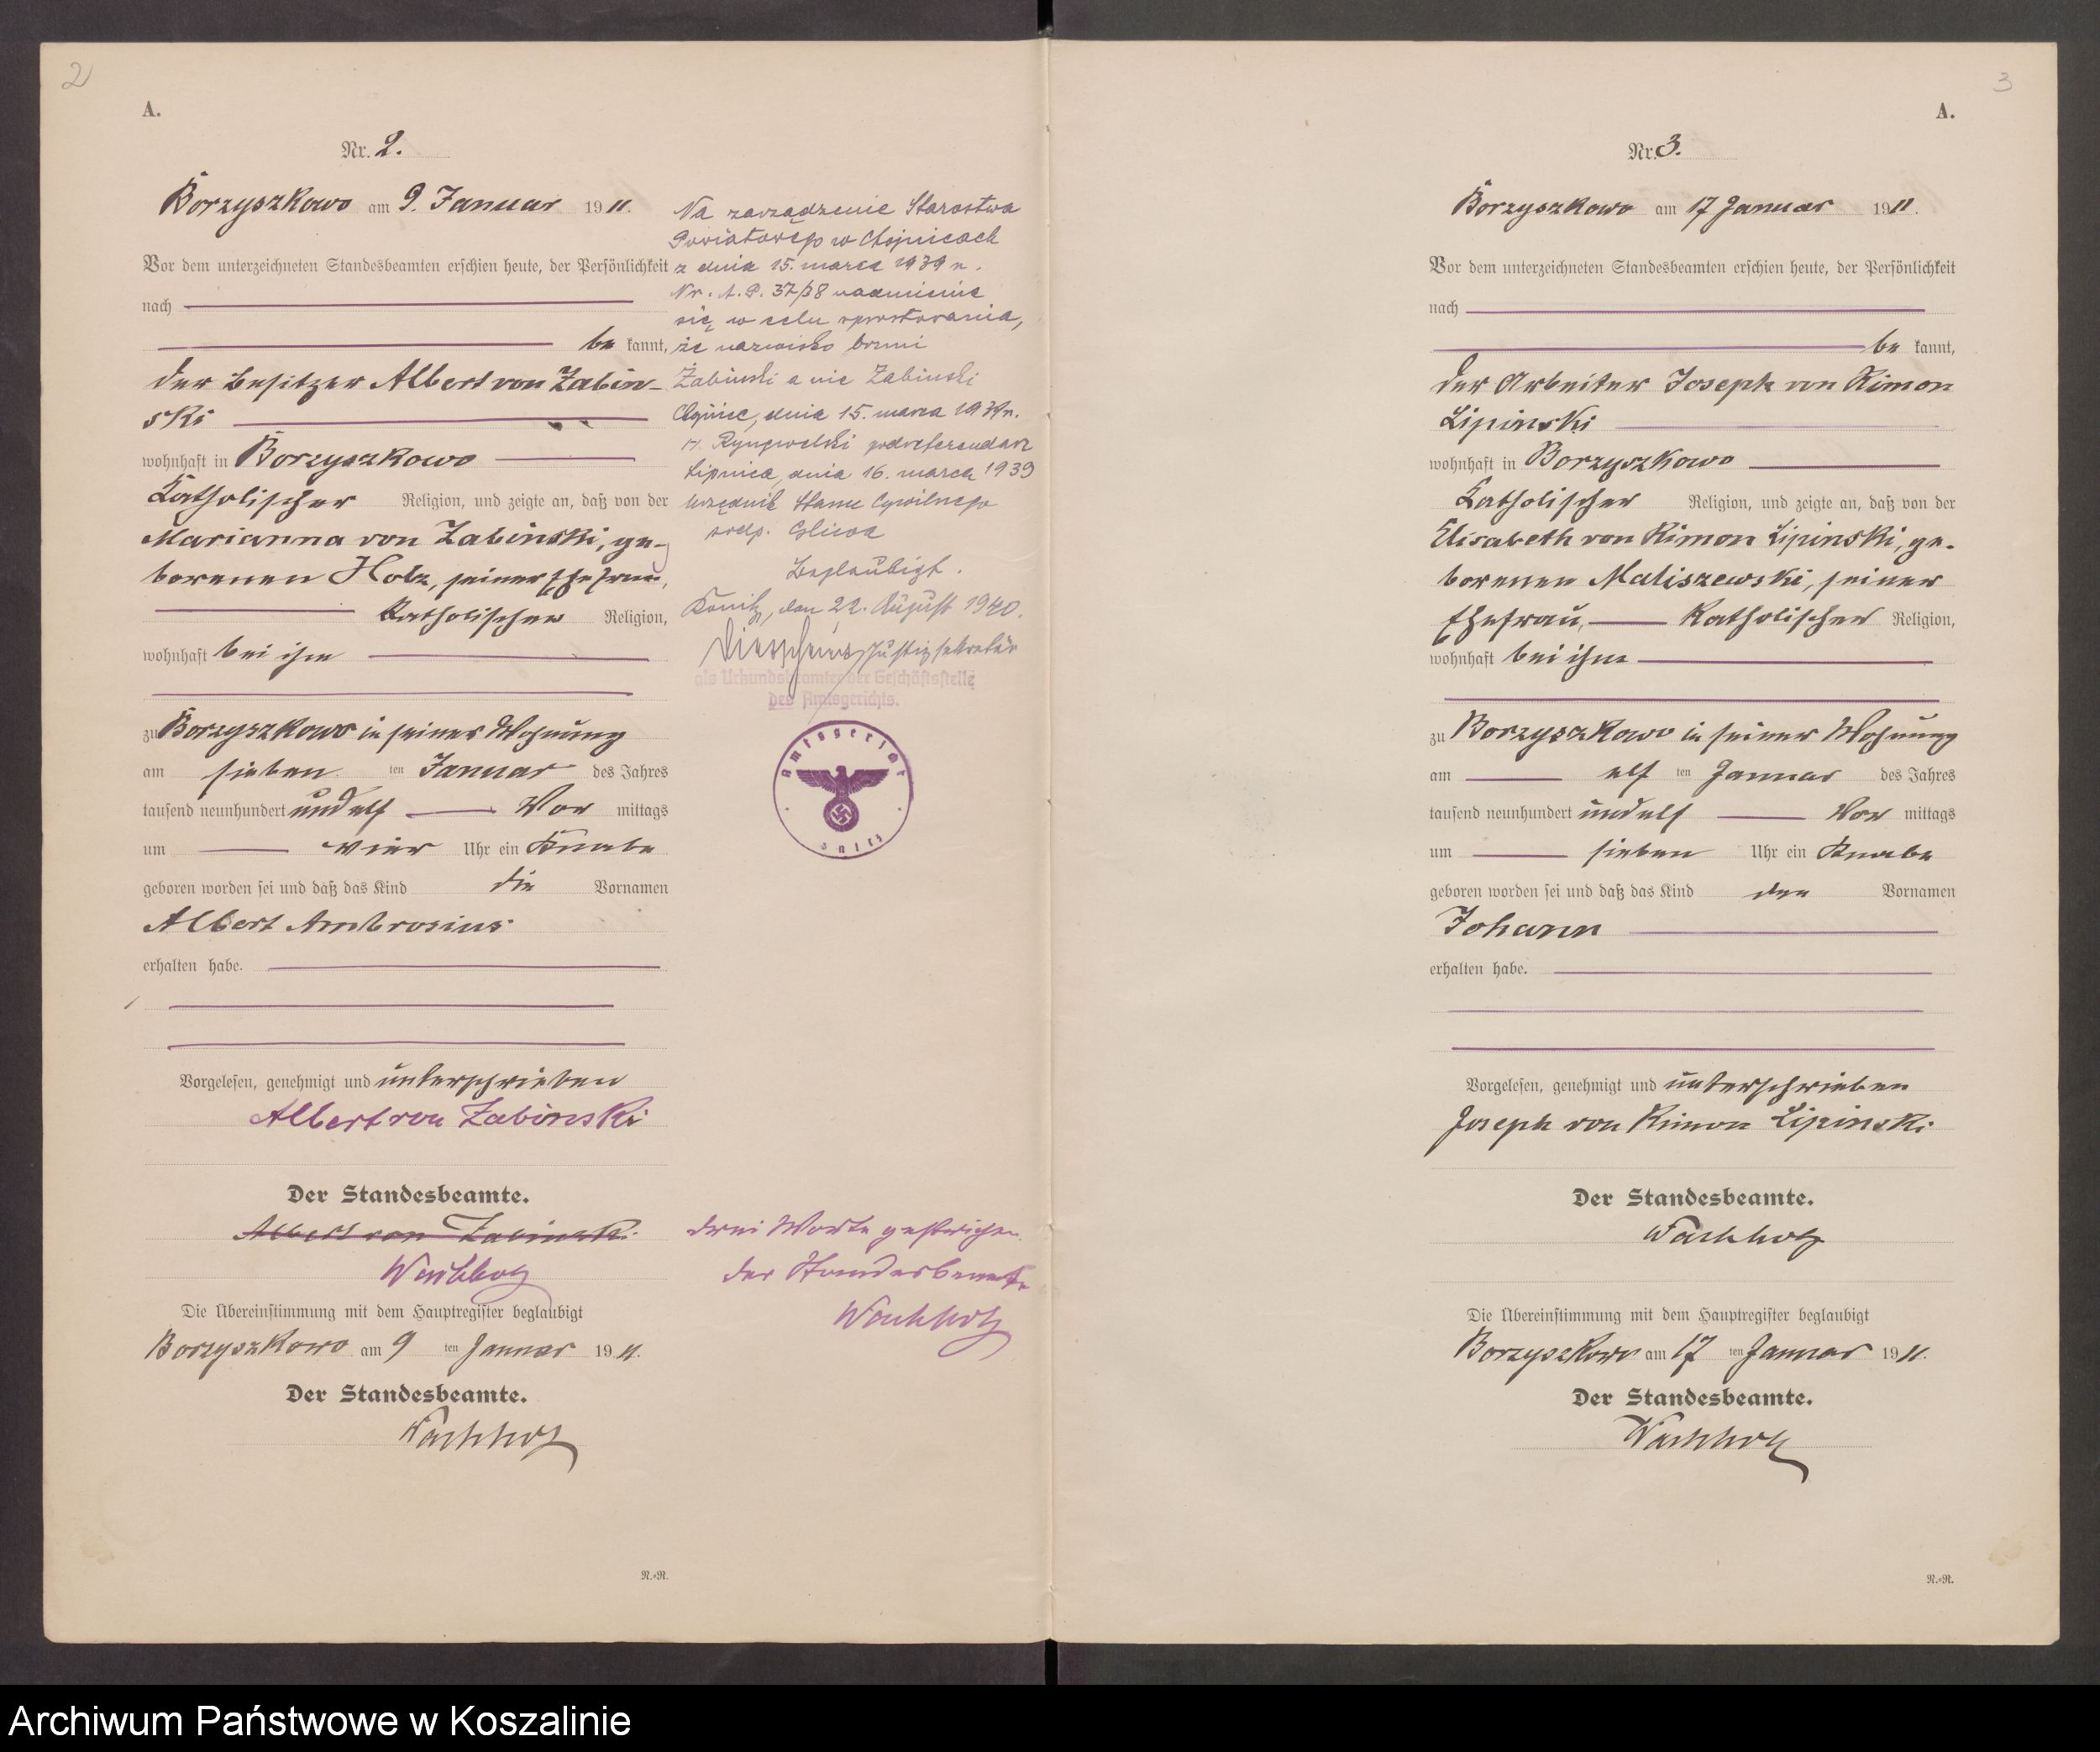 2
A.
Nr. 2.
Borzyszkowo am 9. Januar 1911.
Vor dem unterzeichneten Standesbeamten erschien heute, der Persönlichkeit
nach
be kannt,
der Besitzer Albert von Zabin-
ski
wohnhaft in Borzyszkowo
Katholischer Religion, und zeigte an, daß von der
Marianna von Zabinski, ge-
borenen Holz, seiner Ehefrau,
Katholischer Religion,
wohnhaft bei ihm
zu Borzyszkowo in seiner Wohnung
am sieben ten Januar des Jahres
tausend neunhundert und elf Vor mittags
um vier Uhr ein Knabe
geboren worden sei und daß das Kind die Vornamen
Albert Ambrosius
erhalten habe.
Vorgelesen, genehmigt und unterschrieben
Albert von Zabinski
Der Standesbeamte.
Albert von Zabinski
Wachholz
Die Übereinstimmung mit dem Hauptregister beglaubigt
Borzyszkowo am 9 ten Januar 1911.
Der Standesbeamte.
Wachholz
N.=N.
Na zarządzenie Starostwa
Powiatowego w Chojnicach
z dnia 15. marca 1939 r.
Nr. A. P. 37/38 nadmienia
się w celu sprostowania,
że nazwisko brzmi
Żabiński a nie Zabinski
Chojnice, dnia 15. marca 1939 r.
podreferendarz
Lipnica, dnia 16. marca 1939
Urzędnik Stanu Cywilnego
podp. Gliwa
Beglaubigt.
Konitz, den 22. August 1940.
Justizsekretär
als Urkundsbeamter der Geschäftsstelle
des Amtsgerichts.
Amtsgericht
drei Worte gestrichen.
der Standesbeamte
Wachholz
3
A.
Nr. 3.
Borzyszkowo am 17 Januar 1911.
Vor dem unterzeichneten Standesbeamten erschien heute, der Persönlichkeit
nach
be kannt,
der Arbeiter Joseph von Kimon
Lipinski
wohnhaft in Borzyszkowo
Katholischer Religion, und zeigte an, daß von der
Elisabeth von Kimon Lipinski, ge-
borenen Maliszewski, seiner
Ehefrau, Katholischer Religion,
wohnhaft bei ihm
zu Borzyszkowo in seiner Wohnung
am elf ten Januar des Jahres
tausend neunhundert und elf Vor mittags
um sieben Uhr ein Knabe
geboren worden sei und daß das Kind den Vornamen
Johann
erhalten habe.
Vorgelesen, genehmigt und unterschrieben
Joseph von Kimon Lipinski
Der Standesbeamte.
Wachholz
Die Übereinstimmung mit dem Hauptregister beglaubigt
Borzyszkowo am 17 ten Januar 1911.
Der Standesbeamte.
Wachholz
N.=N.
Archiwum Państwowe w Koszalinie